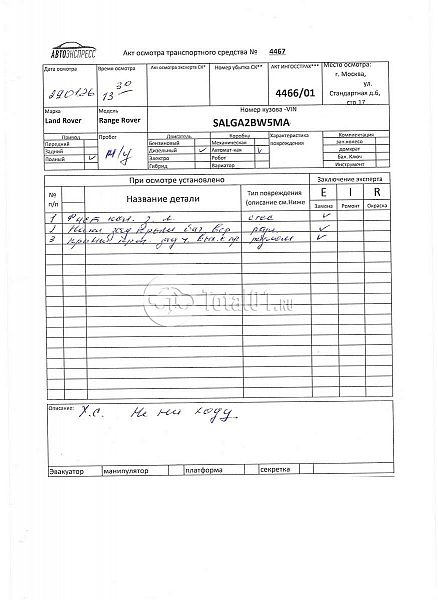 АВТОЭКСПРЕСС
Акт осмотра транспортного средства № 4467
Дата осмотра
Время осмотра
Акт осмотра эксперта СК*
Номер убытка СК**
АКТ ИНГОССТРАХ***
Место осмотра:
г. Москва,
ул.
Стандартная д.6,
стр.17
13 30
4466/01
Марка
Модель
Номер кузова -VIN
Land Rover
Range Rover
SALGA2BW5MA
Привод
Пробег
Двигатель
Коробка
Характеристика повреждения
Комплектация
Передний
Бензиновый
Механическая
зап.колесо
Задний
Дизельный
Автомат-кая
домкрат
Полный
Электро
Робот
Бал. Ключ
Гибрид
Вариатор
Инструмент
м/у
При осмотре установлено
Заключение эксперта
№ п/п
Название детали
Тип повреждения (описание см.Ниже
E
I
R
Замена
Ремонт
Окраска
1
2
3
Total01.ru
Описание:
Х.С. Не на ходу.
Эвакуатор
манипулятор
платформа
секретка